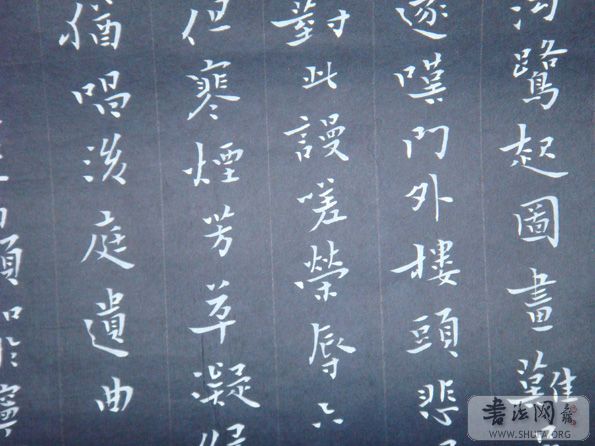 河鷺起圖畫難
逐嘆門外樓頭悲
對此謾嗟榮辱六
但寒煙芳草凝
猶唱後庭遺曲
書法网
WWW.SHUFA.ORG